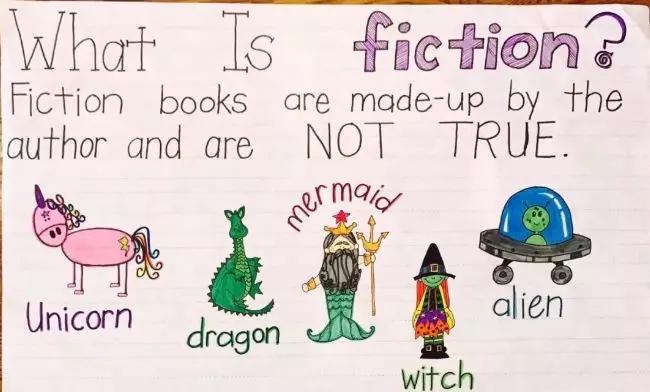 What Is fiction?
Fiction books are made-up by the
author and are NOT TRUE.
mermaid
Unicorn
dragon
alien
witch